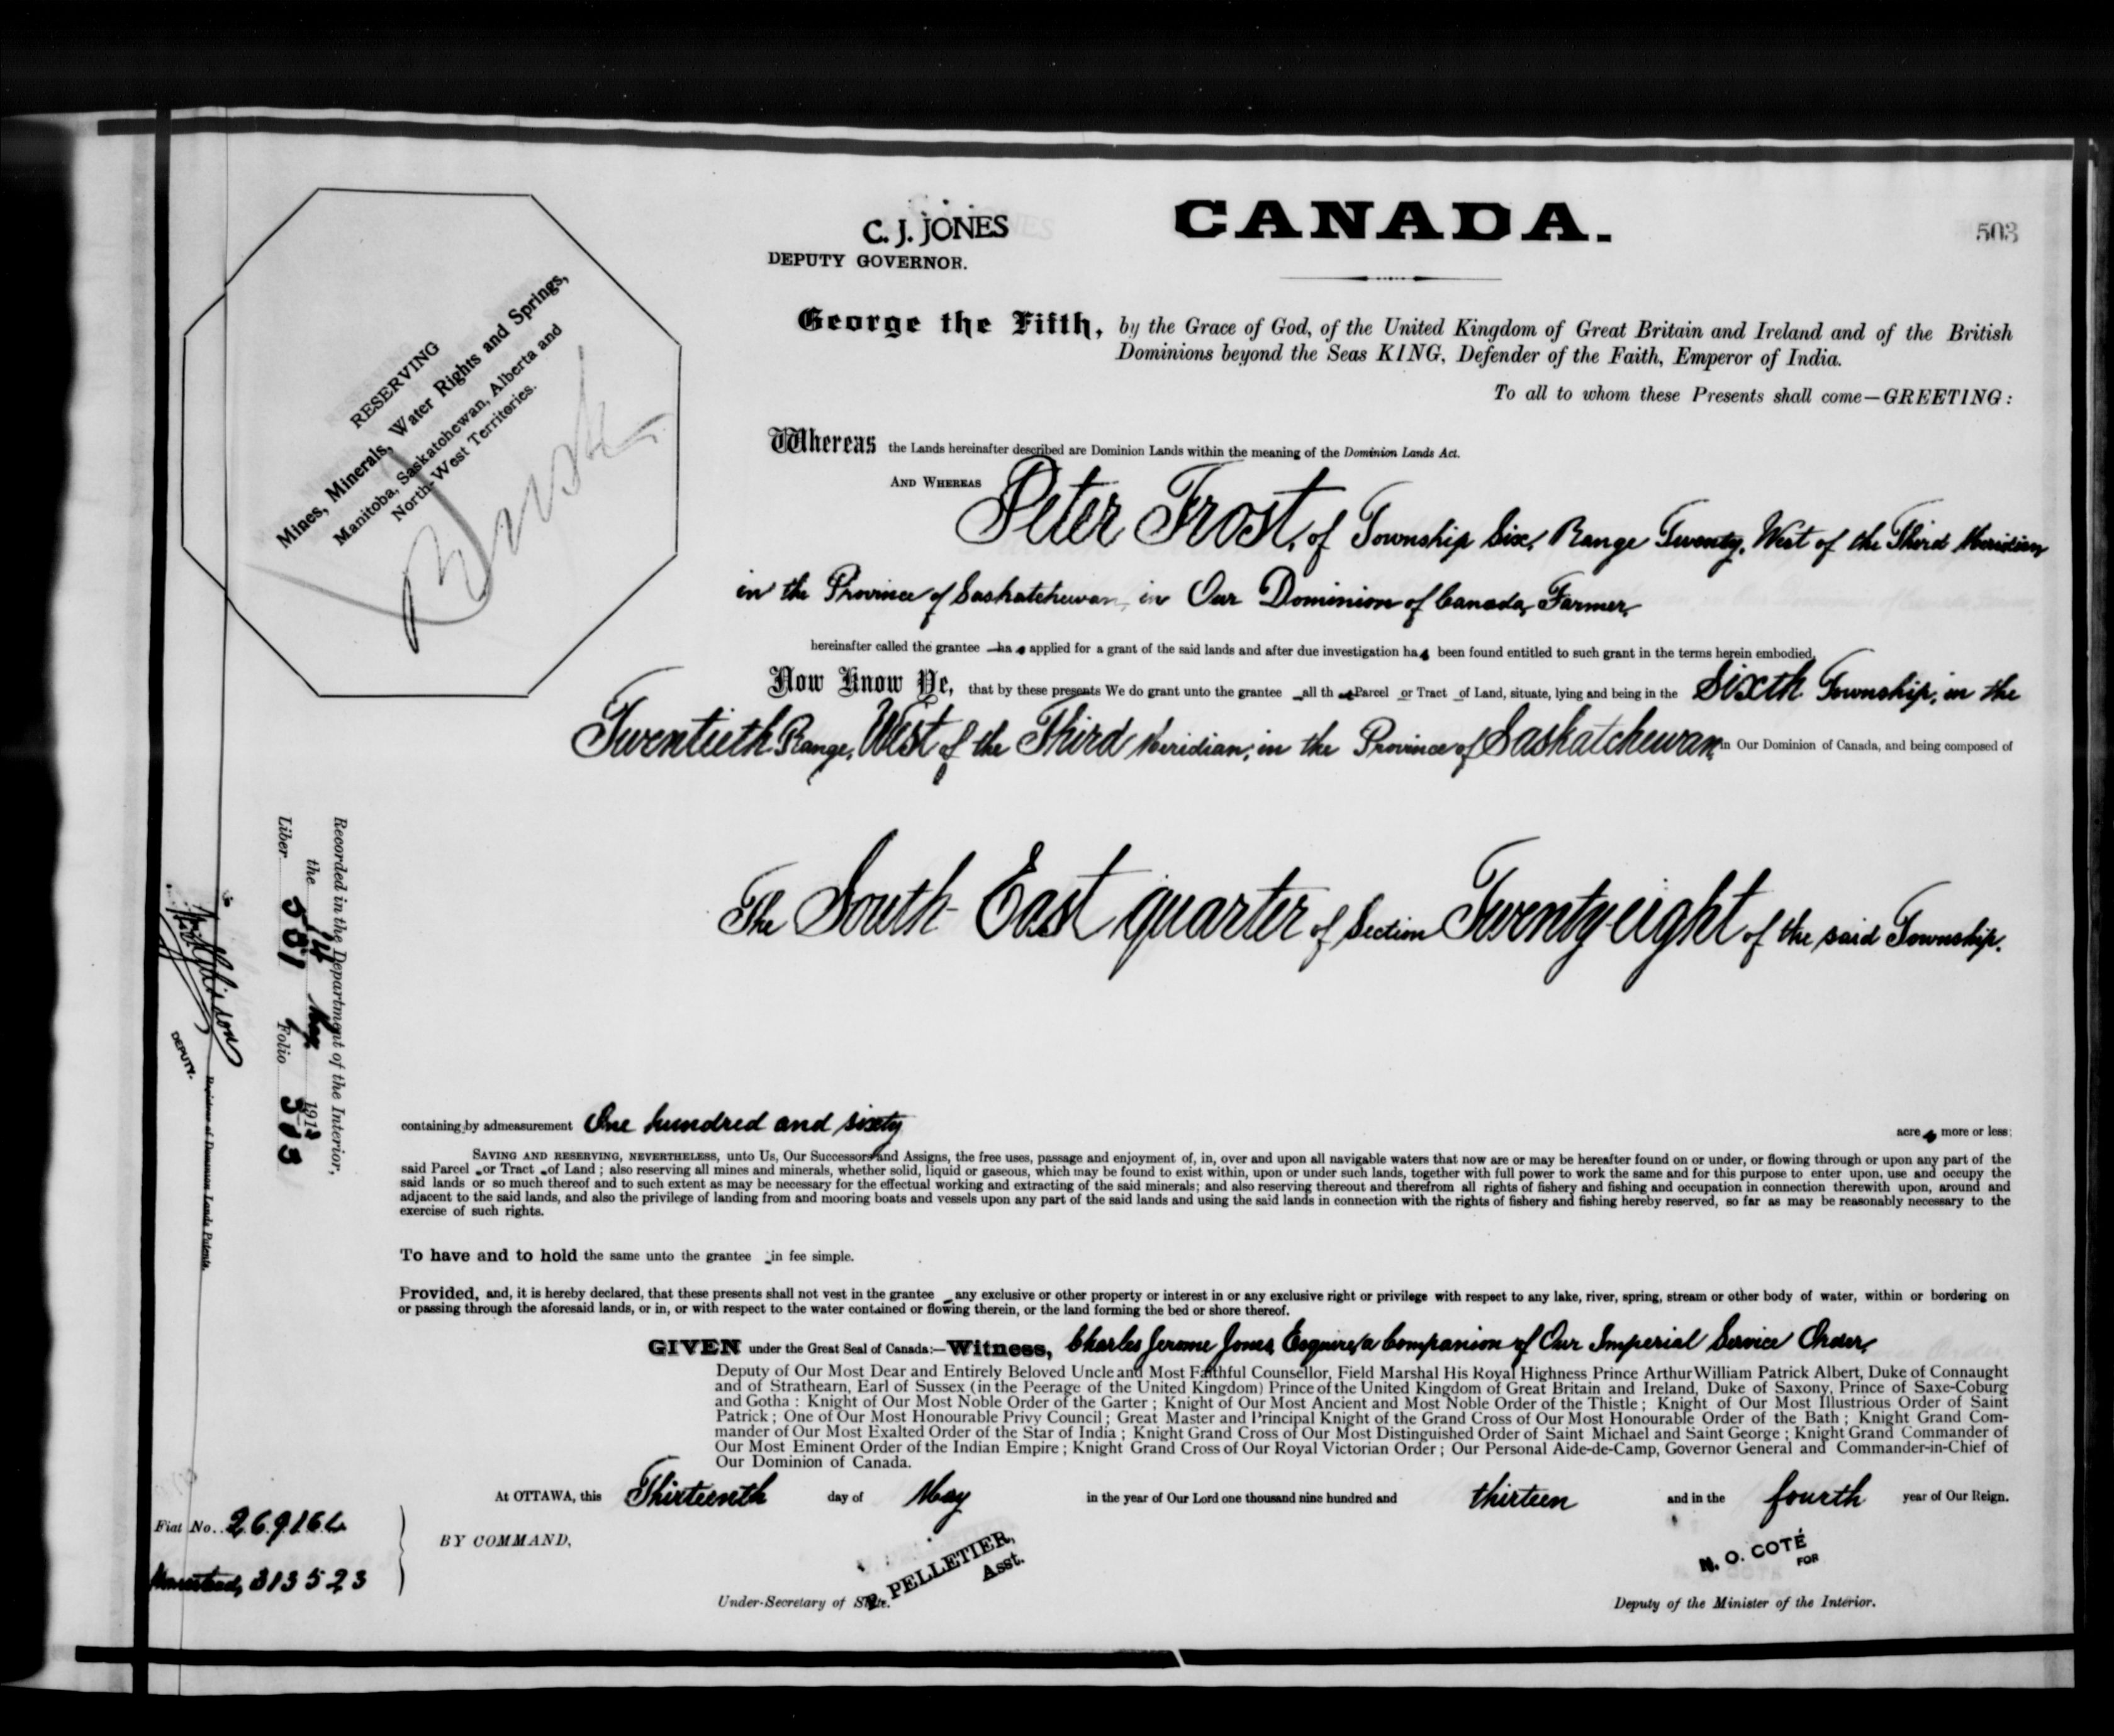 C. J. JONES
DEPUTY GOVERNOR.
CANADA.
503
RESERVING
Mines, Minerals, Water Rights and Springs,
Manitoba, Saskatchewan, Alberta and
North-West Territories.
George the Fifth, by the Grace of God, of the United Kingdom of Great Britain and Ireland and of the British
Dominions beyond the Seas KING, Defender of the Faith, Emperor of India.
To all to whom these Presents shall come—GREETING:
Whereas the Lands hereinafter described are Dominion Lands within the meaning of the Dominion Lands Act.
AND WHEREAS Peter Frost, of Township Six, Range Twenty, West of the Third Meridian
in the Province of Saskatchewan, in Our Dominion of Canada, Farmer,
hereinafter called the grantee has applied for a grant of the said lands and after due investigation has been found entitled to such grant in the terms herein embodied,
Now Know Ye, that by these presents We do grant unto the grantee all that Parcel or Tract of Land, situate, lying and being in the Sixth Township, in the
Twentieth Range, West of the Third Meridian, in the Province of Saskatchewan, in Our Dominion of Canada, and being composed of
The South East quarter of Section Twenty-eight of the said Township.
Recorded in the Department of the Interior,
the May 1913
Liber 501 Folio 503
DEPUTY.
Registrar of Dominion Lands Patents.
containing by admeasurement One hundred and sixty acres more or less;
SAVING AND RESERVING, NEVERTHELESS, unto Us, Our Successors and Assigns, the free uses, passage and enjoyment of, in, over and upon all navigable waters that now are or may be hereafter found on or under, or flowing through or upon any part of the
said Parcel or Tract of Land; also reserving all mines and minerals, whether solid, liquid or gaseous, which may be found to exist within, upon or under such lands, together with full power to work the same and for this purpose to enter upon, use and occupy the
said lands or so much thereof and to such extent as may be necessary for the effectual working and extracting of the said minerals; and also reserving thereout and therefrom all rights of fishery and fishing and occupation in connection therewith upon, around and
adjacent to the said lands, and also the privilege of landing from and mooring boats and vessels upon any part of the said lands and using the said lands in connection with the rights of fishery and fishing hereby reserved, so far as may be reasonably necessary to the
exercise of such rights.
To have and to hold the same unto the grantee in fee simple.
Provided, and, it is hereby declared, that these presents shall not vest in the grantee any exclusive or other property or interest in or any exclusive right or privilege with respect to any lake, river, spring, stream or other body of water, within or bordering on
or passing through the aforesaid lands, or in, or with respect to the water contained or flowing therein, or the land forming the bed or shore thereof.
GIVEN under the Great Seal of Canada:—Witness, Charles Jerome Jones, Esquire, a Companion of Our Imperial Service Order,
Deputy of Our Most Dear and Entirely Beloved Uncle and Most Faithful Counsellor, Field Marshal His Royal Highness Prince Arthur William Patrick Albert, Duke of Connaught
and of Strathearn, Earl of Sussex (in the Peerage of the United Kingdom) Prince of the United Kingdom of Great Britain and Ireland, Duke of Saxony, Prince of Saxe-Coburg
and Gotha: Knight of Our Most Noble Order of the Garter; Knight of Our Most Ancient and Most Noble Order of the Thistle; Knight of Our Most Illustrious Order of Saint
Patrick; One of Our Most Honourable Privy Council; Great Master and Principal Knight of the Grand Cross of Our Most Honourable Order of the Bath; Knight Grand Com-
mander of Our Most Exalted Order of the Star of India; Knight Grand Cross of Our Most Distinguished Order of Saint Michael and Saint George; Knight Grand Commander of
Our Most Eminent Order of the Indian Empire; Knight Grand Cross of Our Royal Victorian Order; Our Personal Aide-de-Camp, Governor General and Commander-in-Chief of
Our Dominion of Canada.
At OTTAWA, this Thirteenth day of May in the year of Our Lord one thousand nine hundred and thirteen and in the fourth year of Our Reign.
Fiat No. 269164
Homestead, 313523
BY COMMAND,
P. PELLETIER,
Asst.
Under-Secretary of State.
N. O. COTÉ
FOR
Deputy of the Minister of the Interior.